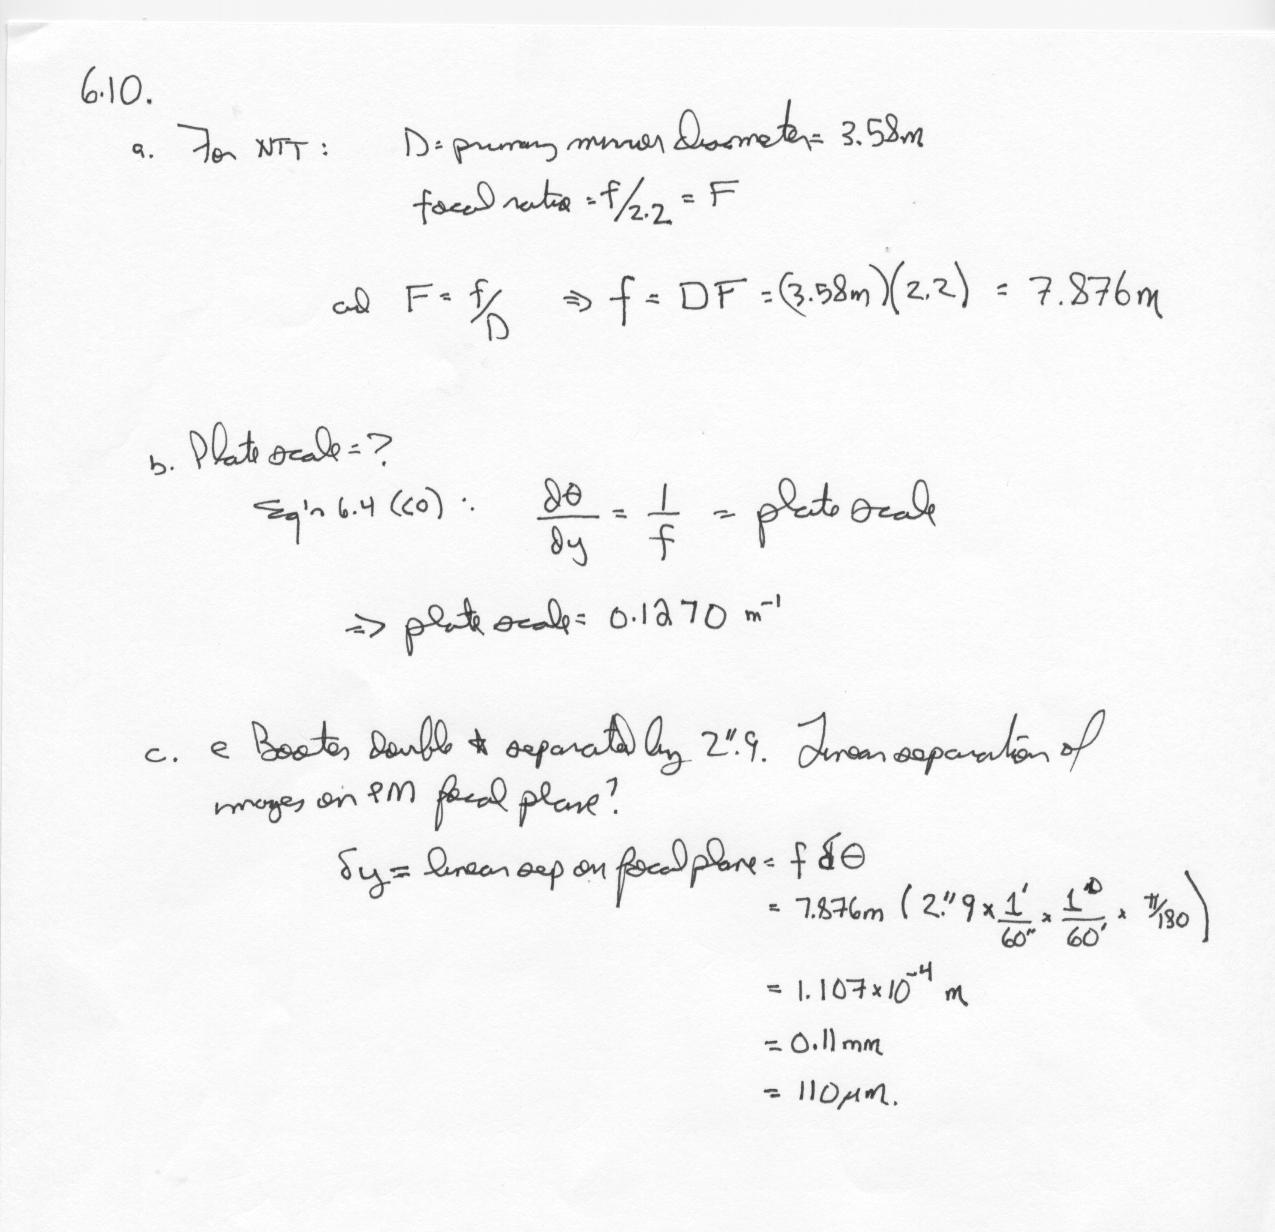 6.10.
a. For NTT : D = primary mirror diameter = 3.58m
focal ratio = f/2.2 = F
and F = f/D ⇒ f = DF = (3.58m)(2.2) = 7.876m
b. Plate scale = ?
Eq'n 6.4 (CO) : δθ/δy = 1/f = plate scale
⇒ plate scale = 0.1270 m⁻¹
c. e Bootes double * separated by 2".9. Linear separation of
images on PM focal plane?
δy = linear sep on focal plane = f δθ
= 7.876m ( 2."9 × 1'/60" × 1°/60' × π/180 )
= 1.107 × 10⁻⁴ m
= 0.11 mm
= 110 μm.